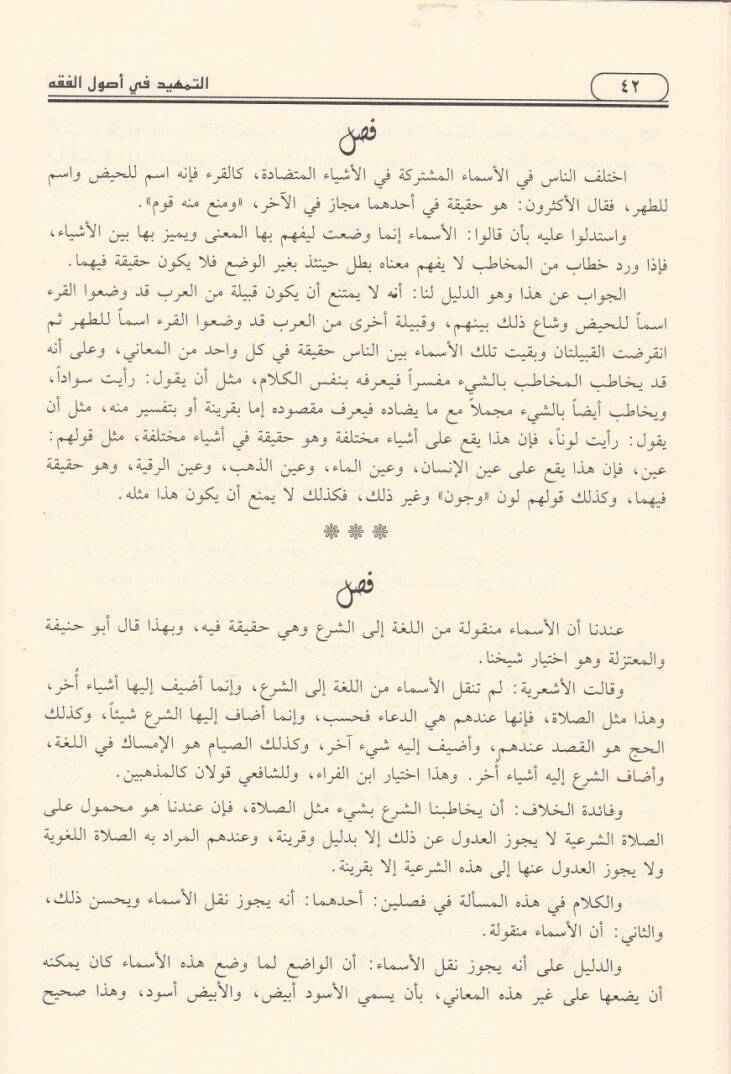 ٤٢
التمهيد في أصول الفقه
فصل
اختلف الناس في الأسماء المشتركة في الأشياء المتضادة، كالقرء فإنه اسم للحيض واسم
للطهر، فقال الأكثرون: هو حقيقة في أحدهما مجاز في الآخر، «ومنع منه قوم».
واستدلوا عليه بأن قالوا: الأسماء إنما وضعت ليفهم بها المعنى ويميز بها بين الأشياء،
فإذا ورد خطاب من المخاطب لا يفهم معناه بطل حينئذ بغير الوضع فلا يكون حقيقة فيهما.
الجواب عن هذا وهو الدليل لنا: أنه لا يمتنع أن يكون قبيلة من العرب قد وضعوا القرء
اسماً للحيض وشاع ذلك بينهم، وقبيلة أخرى من العرب قد وضعوا القرء اسماً للطهر ثم
انقرضت القبيلتان وبقيت تلك الأسماء بين الناس حقيقة في كل واحد من المعاني، وعلى أنه
قد يخاطب المخاطب بالشيء مفسراً فيعرفه بنفس الكلام، مثل أن يقول: رأيت سواداً،
ويخاطب أيضاً بالشيء مجملاً مع ما يضاده فيعرف مقصوده إما بقرينة أو بتفسير منه، مثل أن
يقول: رأيت لوناً، فإن هذا يقع على أشياء مختلفة وهو حقيقة في أشياء مختلفة، مثل قولهم:
عين، فإن هذا يقع على عين الإنسان، وعين الماء، وعين الذهب، وعين الرقية، وهو حقيقة
فيهما، وكذلك قولهم لون «وجون» وغير ذلك، فكذلك لا يمنع أن يكون هذا مثله.
فصل
عندنا أن الأسماء منقولة من اللغة إلى الشرع وهي حقيقة فيه، وبهذا قال أبو حنيفة
والمعتزلة وهو اختيار شيخنا.
وقالت الأشعرية: لم تنقل الأسماء من اللغة إلى الشرع، وإنما أضيف إليها أشياء أُخر،
وهذا مثل الصلاة، فإنها عندهم هي الدعاء فحسب، وإنما أضاف إليها الشرع شيئاً، وكذلك
الحج هو القصد عندهم، وأضيف إليه شيء آخر، وكذلك الصيام هو الإمساك في اللغة،
وأضاف الشرع إليه أشياء أُخر. وهذا اختيار ابن الفراء، وللشافعي قولان كالمذهبين.
وفائدة الخلاف: أن يخاطبنا الشرع بشيء مثل الصلاة، فإن عندنا هو محمول على
الصلاة الشرعية لا يجوز العدول عن ذلك إلا بدليل وقرينة، وعندهم المراد به الصلاة اللغوية
ولا يجوز العدول عنها إلى هذه الشرعية إلا بقرينة.
والكلام في هذه المسألة في فصلين: أحدهما: أنه يجوز نقل الأسماء ويحسن ذلك،
والثاني: أن الأسماء منقولة.
والدليل على أنه يجوز نقل الأسماء: أن الواضع لما وضع هذه الأسماء كان يمكنه
أن يضعها على غير هذه المعاني، بأن يسمي الأسود أبيض، والأبيض أسود، وهذا صحيح